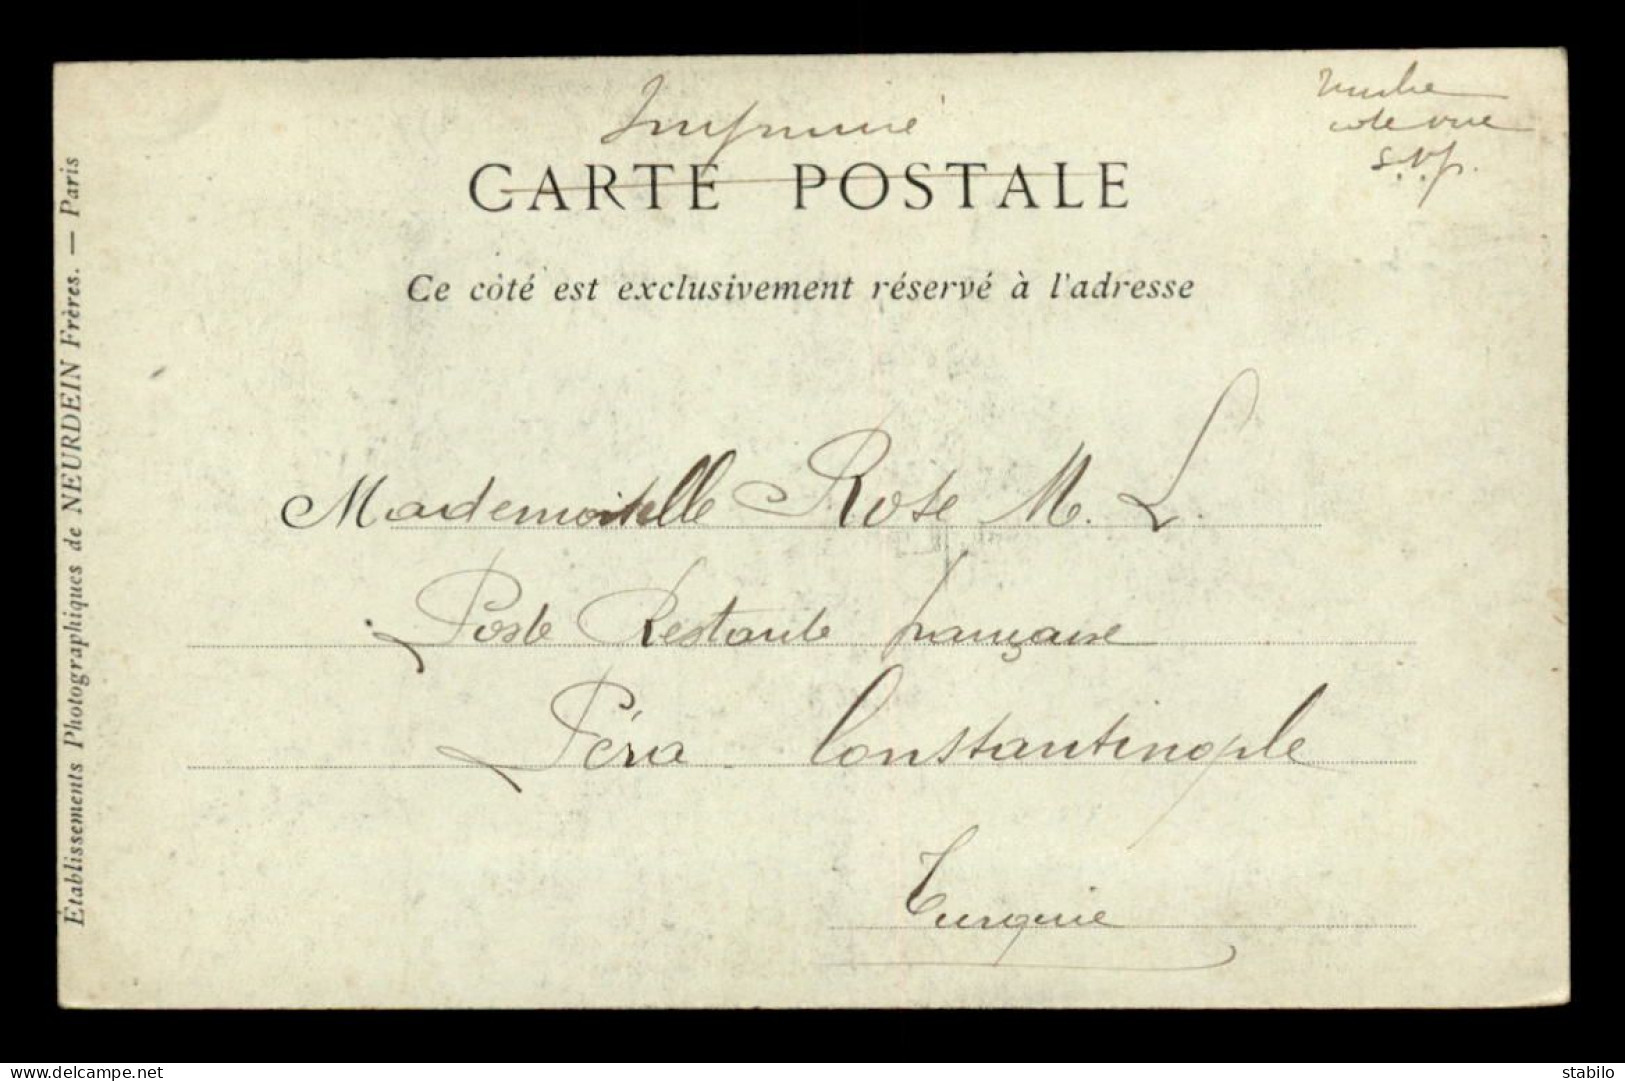 Imprimé
Timbre
côté vue
s.v.p.
CARTE POSTALE
Ce côté est exclusivement réservé à l'adresse
Mademoiselle Rose M. L.
Poste Restante française
Péra - Constantinople
Turquie
Établissements Photographiques de NEURDEIN Frères. — Paris
delcampe.net
stabilo